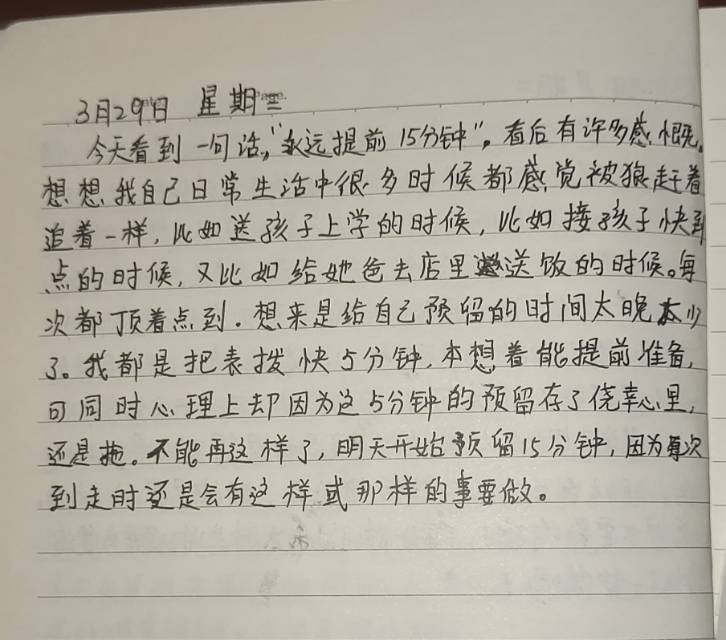 3月29日 星期三
今天看到一句话,"永远提前15分钟"。看后有许多感慨。
想想我自己日常生活中很多时候都感觉被狼赶着
追着一样,比如送孩子上学的时候,比如接孩子快到
点的时候,又比如给她爸去店里送饭的时候。每
次都顶着点到.想来是给自己预留的时间太晚太少
了。我都是把表拨快5分钟,本想着能提前准备,
可同时心理上却因为这5分钟的预留存了侥幸心里,
还是拖。不能再这样了,明天开始预留15分钟,因为每次
到走时还是会有这样或那样的事要做。